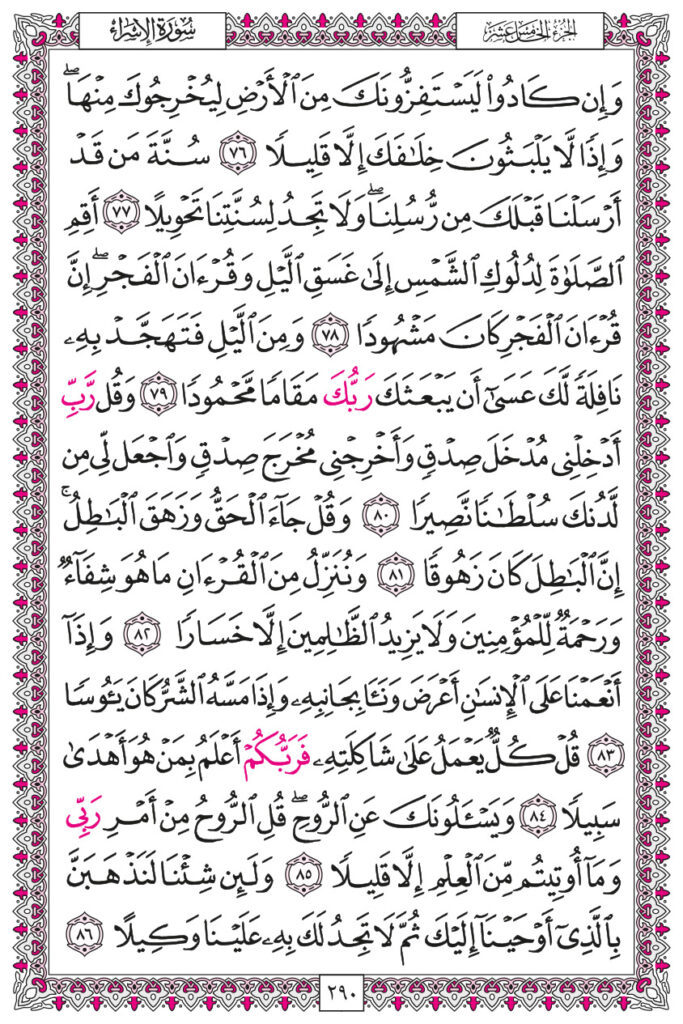 سُورَةُ الإِسْرَاء
الجُزْءُ الخَامِسَ عَشَرَ
وَإِن كَادُواْ لَيَسْتَفِزُّونَكَ مِنَ ٱلْأَرْضِ لِيُخْرِجُوكَ مِنْهَاۖ
وَإِذًا لَّا يَلْبَثُونَ خِلَٰفَكَ إِلَّا قَلِيلًا ٧٦ سُنَّةَ مَن قَدْ
أَرْسَلْنَا قَبْلَكَ مِن رُّسُلِنَاۖ وَلَا تَجِدُ لِسُنَّتِنَا تَحْوِيلًا ٧٧ أَقِمِ
ٱلصَّلَوٰةَ لِدُلُوكِ ٱلشَّمْسِ إِلَىٰ غَسَقِ ٱلَّيْلِ وَقُرْءَانَ ٱلْفَجْرِۖ إِنَّ
قُرْءَانَ ٱلْفَجْرِ كَانَ مَشْهُودًا ٧٨ وَمِنَ ٱلَّيْلِ فَتَهَجَّدْ بِهِۦ
نَافِلَةً لَّكَ عَسَىٰٓ أَن يَبْعَثَكَ رَبُّكَ مَقَامًا مَّحْمُودًا ٧٩ وَقُل رَّبِّ
أَدْخِلْنِى مُدْخَلَ صِدْقٍ وَأَخْرِجْنِى مُخْرَجَ صِدْقٍ وَٱجْعَل لِّى مِن
لَّدُنكَ سُلْطَٰنًا نَّصِيرًا ٨٠ وَقُلْ جَآءَ ٱلْحَقُّ وَزَهَقَ ٱلْبَٰطِلُۚ
إِنَّ ٱلْبَٰطِلَ كَانَ زَهُوقًا ٨١ وَنُنَزِّلُ مِنَ ٱلْقُرْءَانِ مَا هُوَ شِفَآءٌ
وَرَحْمَةٌ لِّلْمُؤْمِنِينَ وَلَا يَزِيدُ ٱلظَّٰلِمِينَ إِلَّا خَسَارًا ٨٢ وَإِذَآ
أَنْعَمْنَا عَلَى ٱلْإِنسَٰنِ أَعْرَضَ وَنَـَٔا بِجَانِبِهِۦ وَإِذَا مَسَّهُ ٱلشَّرُّ كَانَ يَـُٔوسًا
٨٣ قُلْ كُلٌّ يَعْمَلُ عَلَىٰ شَاكِلَتِهِۦ فَرَبُّكُمْ أَعْلَمُ بِمَنْ هُوَ أَهْدَىٰ
سَبِيلًا ٨٤ وَيَسْـَٔلُونَكَ عَنِ ٱلرُّوحِۖ قُلِ ٱلرُّوحُ مِنْ أَمْرِ رَبِّى
وَمَآ أُوتِيتُم مِّنَ ٱلْعِلْمِ إِلَّا قَلِيلًا ٨٥ وَلَئِن شِئْنَا لَنَذْهَبَنَّ
بِٱلَّذِىٓ أَوْحَيْنَآ إِلَيْكَ ثُمَّ لَا تَجِدُ لَكَ بِهِۦ عَلَيْنَا وَكِيلًا ٨٦
٢٩٠